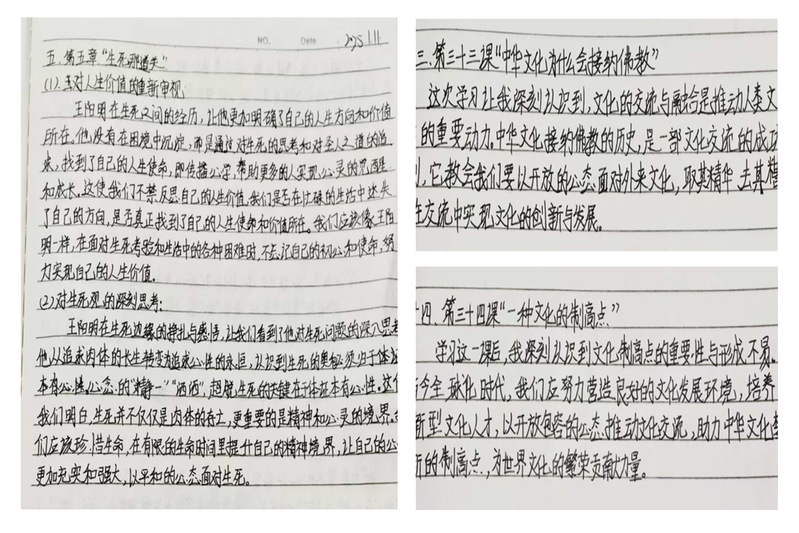 NO.
Date
2025.1.11
五.第五章“生死那道关”
(1).对人生价值的重新审视.
王阳明在生死之间的经历,让他更加明确了自己的人生方向和价值
所在。他没有在困境中沉沦,而是通过对生死的思考和对圣人之道的追
求,找到了自己的人生使命,即传播心学,帮助更多的人实现心灵的觉醒
和成长。这使我们不禁反思自己的人生价值,我们是否在忙碌的生活中迷失
了自己的方向,是否真正找到了自己的人生使命和价值所在。我们应该像王阳
明一样,在面对生死考验和生活中的各种困难时,不忘记自己的初心和使命,努
力实现自己的人生价值.
(2)对生死观的深刻思考:
王阳明在生死边缘的挣扎与感悟,让我们看到了他对生死问题的深入思考
他从追求肉体的长生转变为追求心性的永恒,认识到生死的奥秘须归于体
本有心性.心态的“精一”“洒洒”,超脱生死的关键在于体本有心性。这
我们明白,生死并不仅仅是肉体的存亡,更重要的是精神和心灵的境界.
们应该珍惜生命,在有限的生命时间里提升自己的精神境界,让自己的心
更加充实和强大,以平和的心态面对生死。
三.第三十三课“中华文化为什么会接纳佛教”
这次学习让我深刻认识到,文化的交流与融合是推动人类文
的重要动力.中华文化接纳佛教的历史,是一部文化交流的成功
它教会我们要以开放的心态面对外来文化,取其精华,去其糟
在交流中实现文化的创新与发展。
十四、第三十四课“一种文化的制高点”
学习这一课后,我深刻认识到文化制高点的重要性与形成不易.
今全球化时代,我们应努力营造良好的文化发展环境,培养
新型文化人才,以开放包容的心态推动文化交流,助力中华文化
新的制高点,为世界文化的繁荣贡献力量。